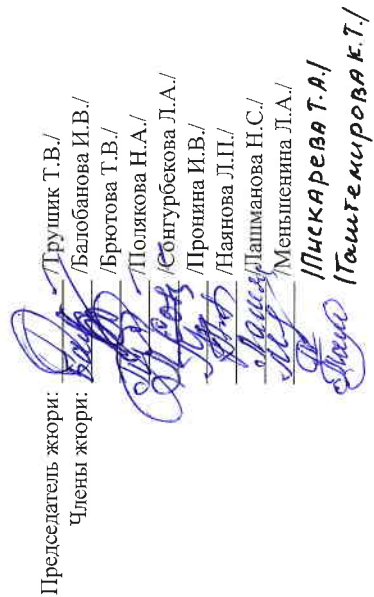 Председатель жюри: /Трушик Т.В./
Члены жюри: /Балобанова И.В./
/Брютова Т.В./
/Полякова Н.А./
/Сонгурбекова Л.А./
/Пронина И.В./
/Наянова Л.П./
/Лашманова Н.С./
/Меньшенина Л.А./
/Пискарева Т.А./
/Таштемирова К.Т./